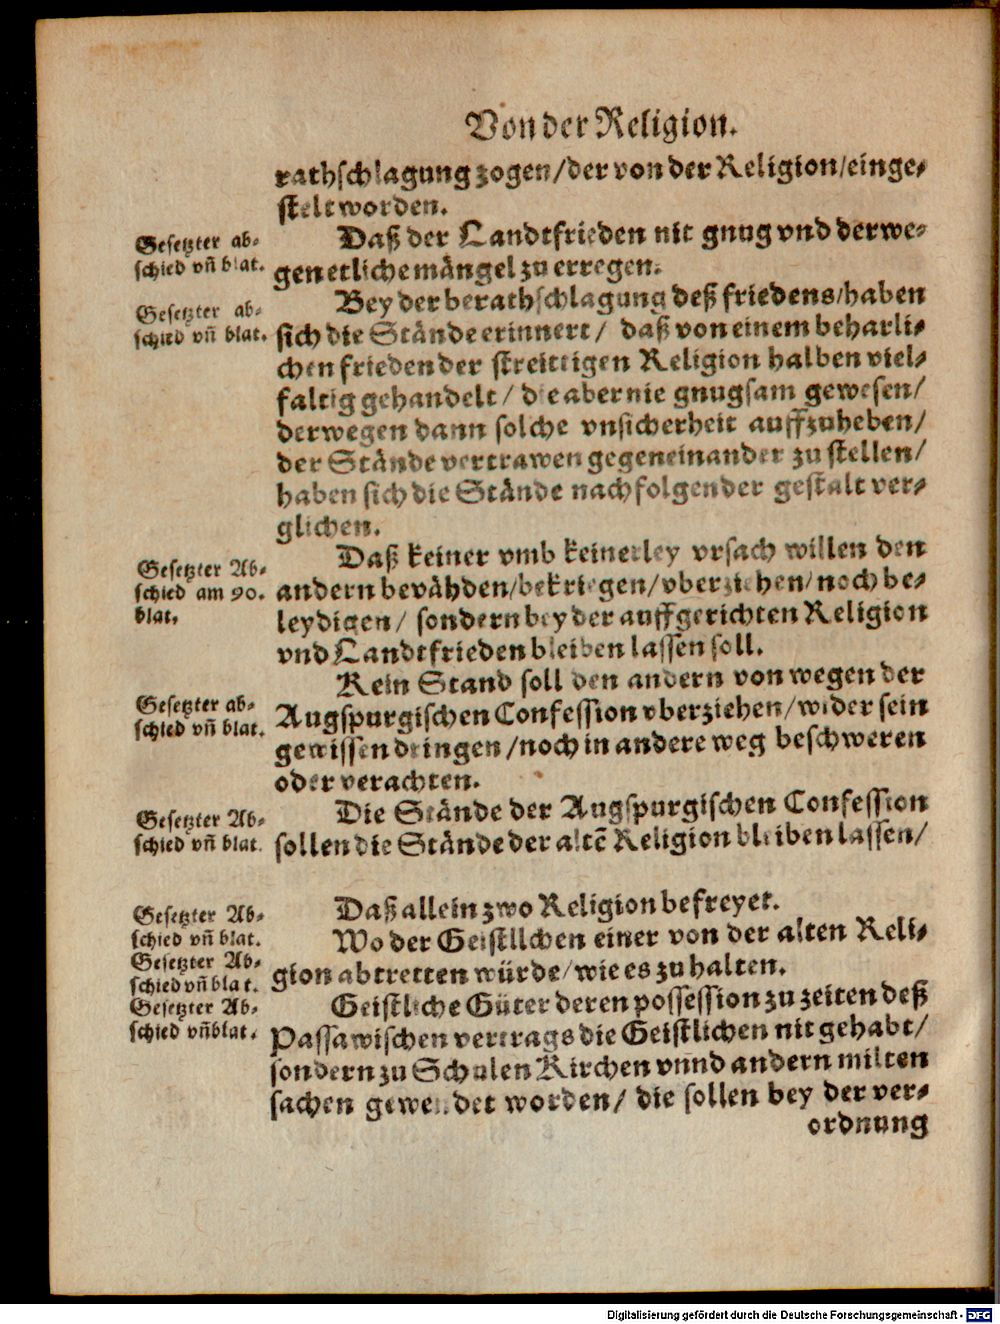 Von der Religion.
rathschlagung zogen/der von der Religion/einge-
stelt worden.
Gesetzter ab-
schied vñ blat.
Daß der Landtfrieden nit gnug vnd derwe-
gen etliche mängel zu erregen.
Gesetzter ab-
schied vñ blat.
Bey der berathschlagung deß friedens/haben
sich die Stände erinnert/ daß von einem beharli-
chen frieden der streittigen Religion halben viel-
faltig gehandelt/ die aber nie gnugsam gewesen/
derwegen dann solche vnsicherheit auffzuheben/
der Stände vertrawen gegeneinander zu stellen/
haben sich die Stände nachfolgender gestalt ver-
glichen.
Gesetzter Ab-
schied am 90.
blat.
Daß keiner vmb keinerley vrsach willen den
andern bevähden/bekriegen/vberziehen/noch be-
leydigen/ sondern bey der auffgerichten Religion
vnd Landtfrieden bleiben lassen soll.
Gesetzter ab-
schied vñ blat.
Kein Stand soll den andern von wegen der
Augspurgischen Confession vberziehen/wider sein
gewissen dringen/noch in andere weg beschweren
oder verachten.
Gesetzter Ab-
schied vñ blat.
Die Stände der Augspurgischen Confession
sollen die Stände der altē Religion bleiben lassen/
Gesetzter Ab-
schied vñ blat.
Daß allein zwo Religion befreyet.
Gesetzter Ab-
schied vñ blat.
Wo der Geistlichen einer von der alten Reli-
gion abtretten würde/wie es zu halten.
Gesetzter Ab-
schied vñ blat.
Geistliche Güter deren possession zu zeiten deß
Passawischen vertrags die Geistlichen nit gehabt/
sondern zu Schulen Kirchen vnnd andern milten
sachen gewendet worden/ die sollen bey der ver-
ordnung
Digitalisierung gefördert durch die Deutsche Forschungsgemeinschaft - DFG